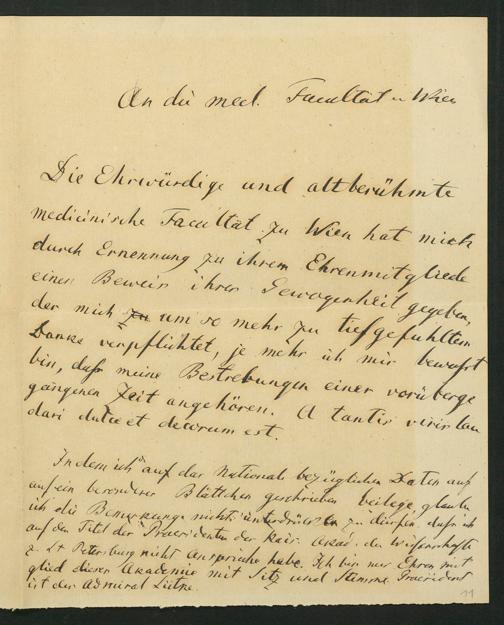 An die med. Facultät in Wien
Die Ehrwürdige und altberühmte
medicinische Facultät zu Wien hat mich
durch Ernennung zu ihrem Ehrenmitgliede
einen Beweis ihrer Gewogenheit gegeben,
der mich zu um so mehr zu tiefgefühltem
Danke verpflichtet, je mehr ich mir bewusst
bin, dass meine Bestrebungen einer vorüberge
gangenen Zeit angehören. A tantis viris lau
dari dulce et decorum est.
Indem ich auf das National bezüglichen Daten auf
auf ein besonderes Blättchen geschrieben beilege, glaube
ich die Bemerkung nicht unterdrücken zu dürfen, dass ich
auf den Titel des Praesidenten der kais. Akad. der Wissenschafte
z. St Petersburg nicht Ansprüche habe. Ich bin nur Ehren mit
glied dieser Akademie mit Sitz und Stimme. Praesident
ist der Admiral Lütke.
11